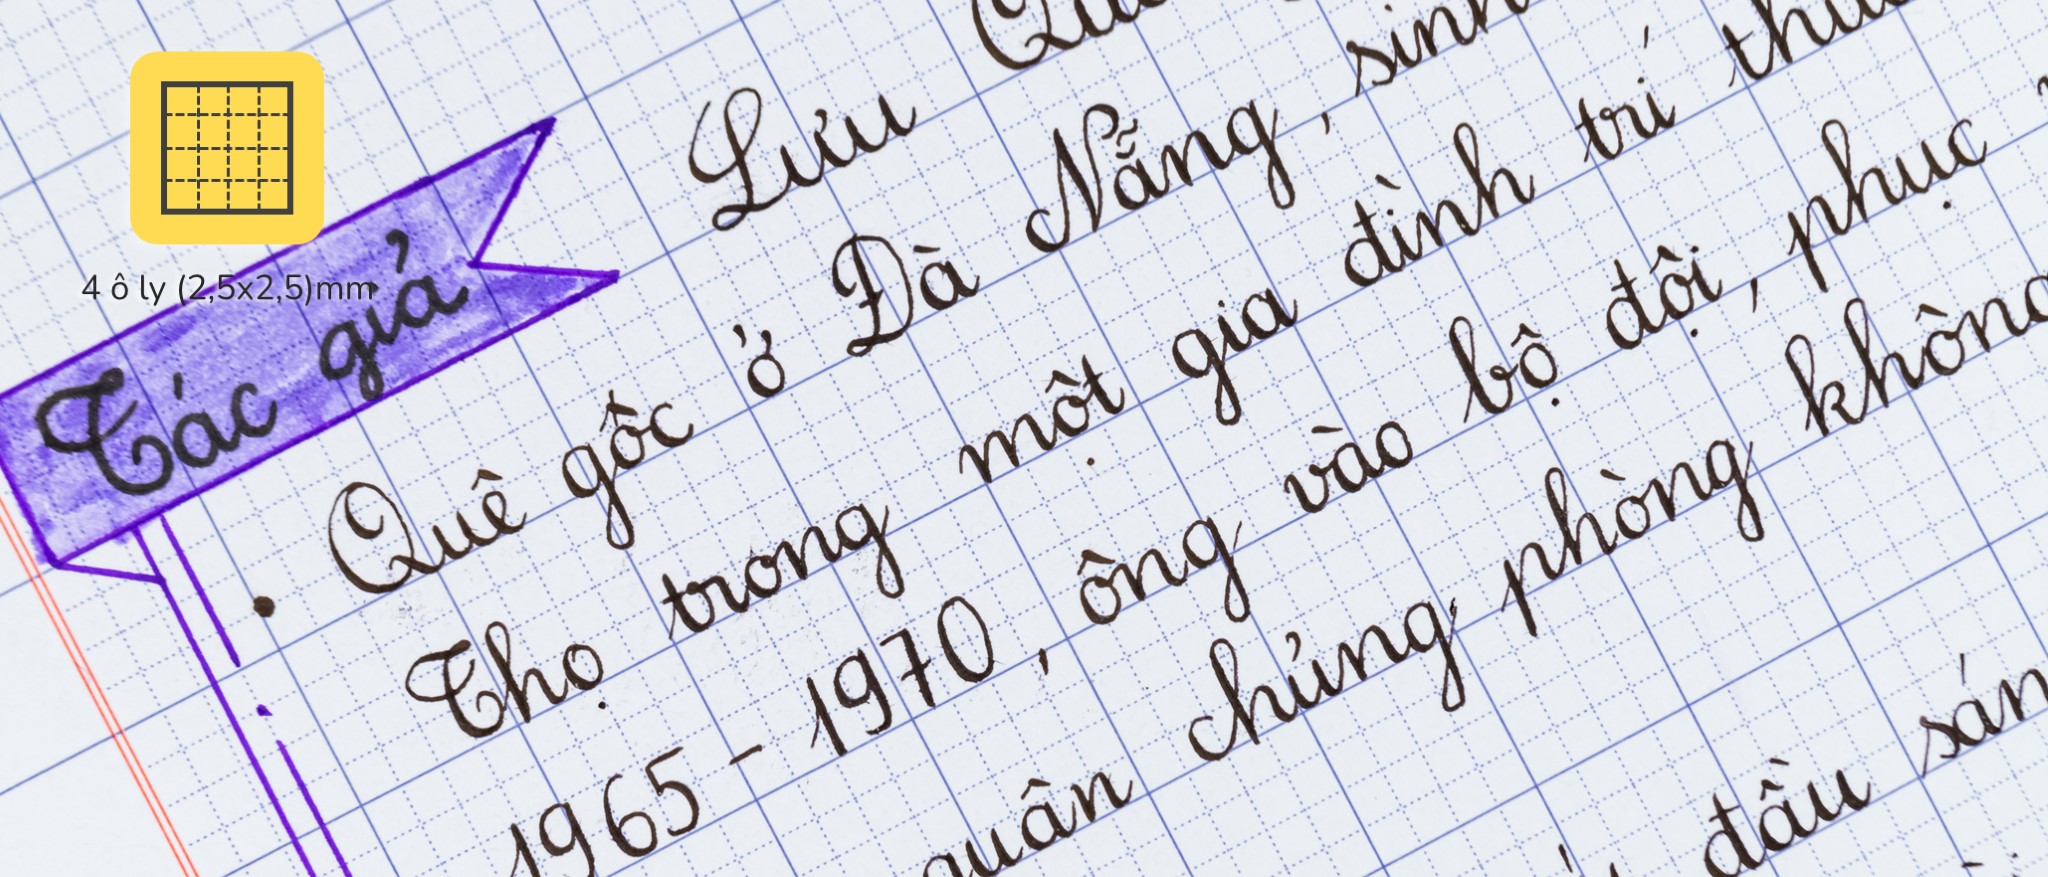 4 ô ly (2,5x2,5)mm
Tác giả
Lưu
Quê gốc ở Đà Nẵng, sinh
Thọ trong một gia đình trí
1965 - 1970, ông vào bộ đội, phục
quân chủng phòng không
đầu